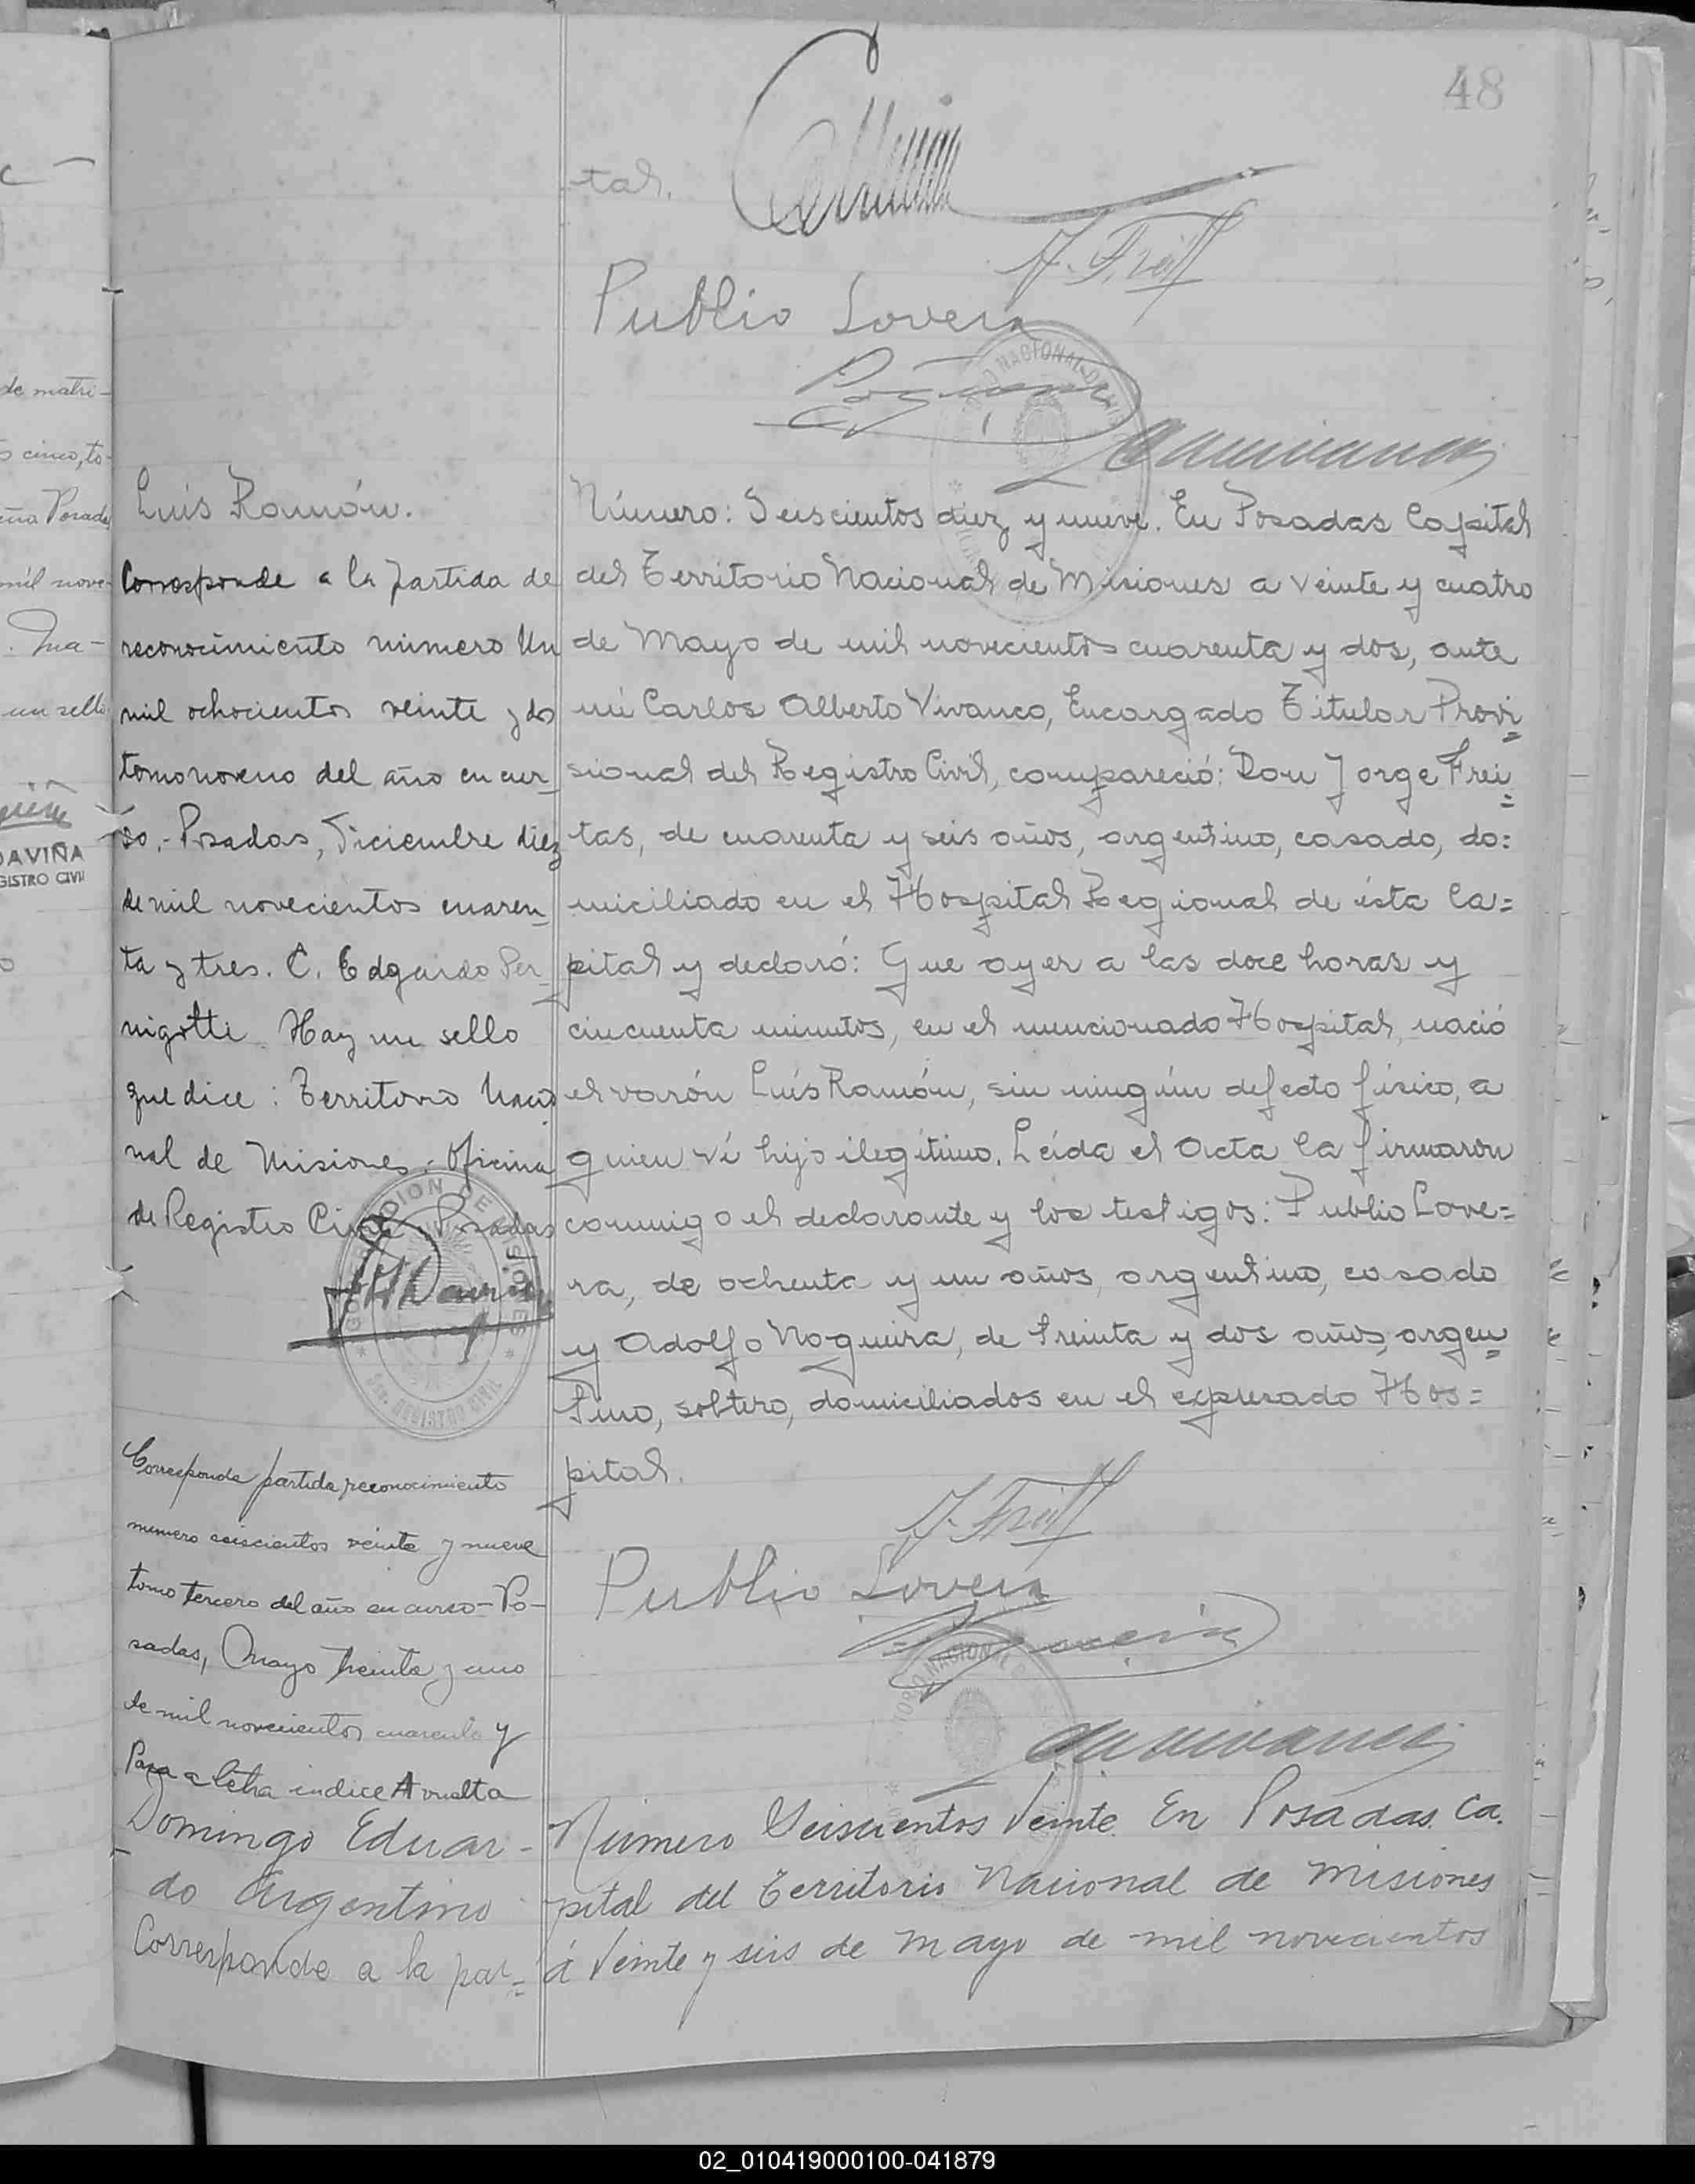 48
tal.
J. Freit
Publio Lovera
Luís Ramón.
Corresponde a la partida de
reconocimiento número Un
mil ochocientos veinte y dos
tomo noveno del año en cur-
so.- Posadas, Diciembre diez
de mil novecientos cuaren-
ta y tres. C. Edgardo Per-
nigotti Hay un sello
que dice: Territorio Nacio
nal de Misiones. Oficina
de Registro Civil Posadas
GOBERNACION DE MISIONES
REGISTRO CIVIL
Corresponde partida reconocimiento
numero seiscientos veinte y nueve
tomo tercero del año en curso - Po-
sadas, Mayo treinta y uno
de mil novecientos cuarenta y
Pasa a letra indice A vuelta
Número: Seiscientos diez y nueve. En Posadas Capital
del Territorio Nacional de Misiones a veinte y cuatro
de Mayo de mil novecientos cuarenta y dos, ante
mí Carlos Alberto Vivanco, Encargado Titular Provi=
sional del Registro Civil, compareció: Don Jorge Frei=
tas, de cuarenta y seis años, argentino, casado, do=
miciliado en el Hospital Regional de ésta Ca=
pital y declaró: Que ayer a las doce horas y
cincuenta minutos, en el mencionado Hospital, nació
el varón Luís Ramón, sin ningún defecto físico, a
quien ví hijo ilegítimo. Leída el Acta la firmaron
conmigo el declarante y los testigos: Publio Love=
ra, de ochenta y un años, argentino, casado
y Adolfo Nogueira, de treinta y dos años, argen=
tino, soltero, domiciliados en el expresado Hos=
pital.
J. Freit
Publio Lovera
Domingo Eduar-
do Argentino
Corresponde a la par=
Número Seiscientos Veinte. En Posadas. Ca.
pital del Territorio Nacional de Misiones
á Veinte y seis de Mayo de mil novecientos
de matri-
s cinco, to-
Posadas
mil nove-
un sello
DAVIÑA
GISTRO CIVIL
02_010419000100-041879